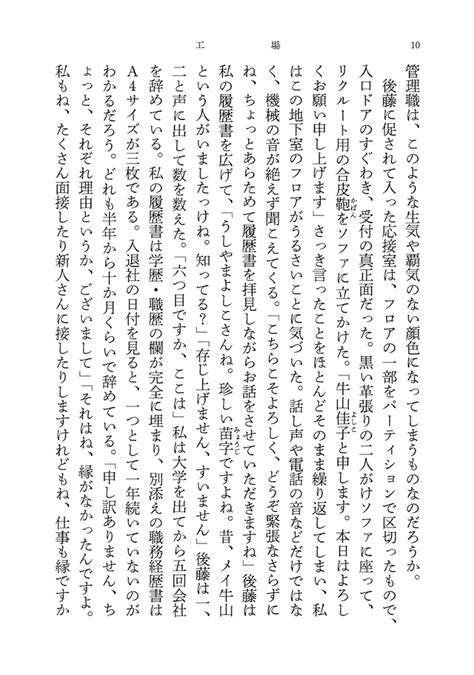 工場
10
管理職は、このような生気や覇気のない顔色になってしまうものなのだろうか。
後藤に促されて入った応接室は、フロアの一部をパーティションで区切ったもので、
入口ドアのすぐわき、受付の真正面だった。黒い革張りの二人がけソファに座って、
リクルート用の合皮鞄をソファに立てかけた。「牛山佳子と申します。本日はよろし
くお願い申し上げます」さっき言ったことをほとんどそのまま繰り返してしまい、私
はこの地下室のフロアがうるさいことに気づいた。話し声や電話の音などだけではな
く、機械の音が絶えず聞こえてくる。「こちらこそよろしく、どうぞ緊張なさらずに
ね、ちょっとあらためて履歴書を拝見しながらお話をさせていただきますね」後藤は
私の履歴書を広げて、「うしやまよしこさんね。珍しい苗字ですよね。昔、メイ牛山
という人がいましたっけね。知ってる?」「存じ上げません、すいません」後藤は一、
二と声に出して数を数えた。「六つ目ですか、ここは」私は大学を出てから五回会社
を辞めている。私の履歴書は学歴・職歴の欄が完全に埋まり、別添えの職務経歴書は
A4サイズが三枚である。入退社の日付を見ると、一つとして一年続いていないのが
わかるだろう。どれも半年から十か月くらいで辞めている。「申し訳ありません、ち
ょっと、それぞれ理由というか、ございまして」「それはね、縁がなかったんですよ。
私もね、たくさん面接したり新人さんに接したりしますけれどもね、仕事も縁ですか
かばん
よしこ
みょうじ